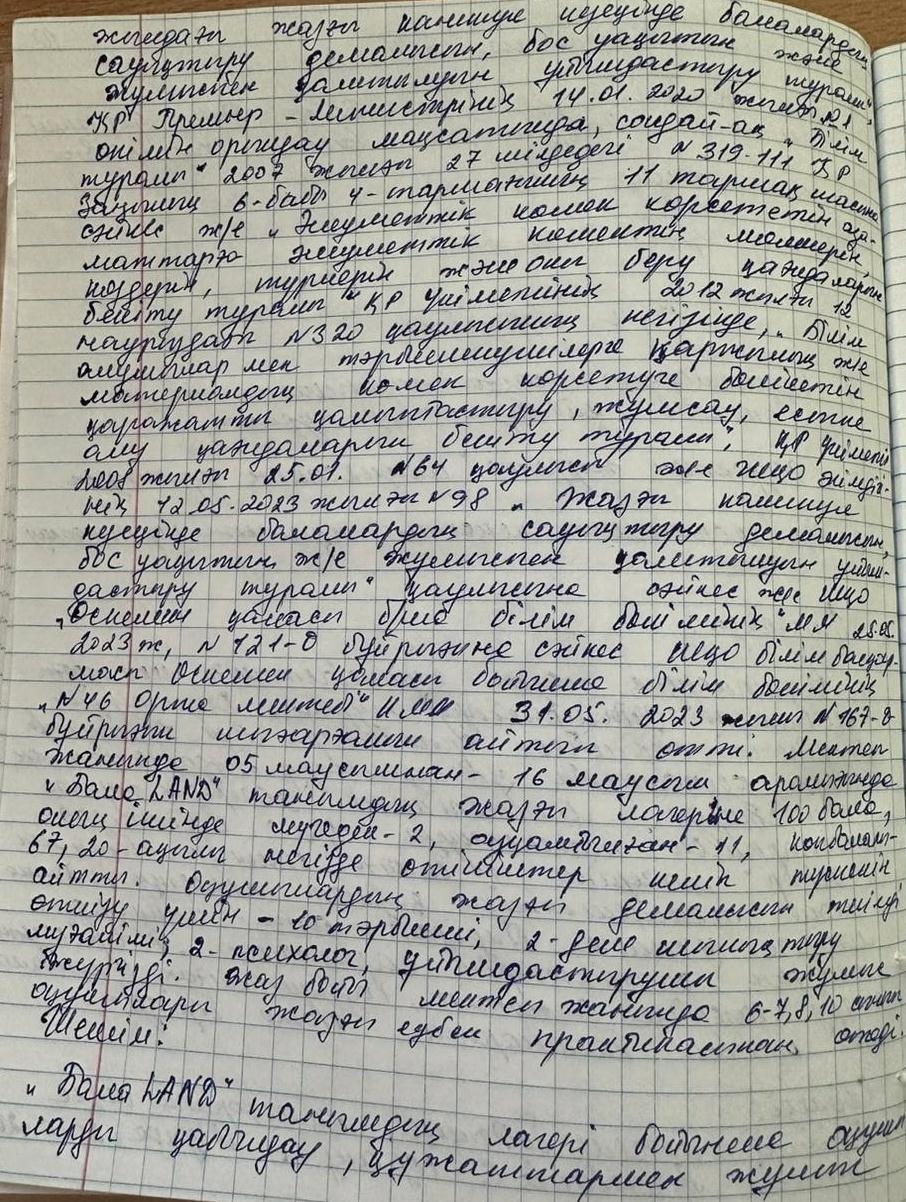 жылдағы жазғы каникул кезеңінде балалардың
сауықтыру демалысын, бос уақытын және
жұмыспен қамтылуын ұйымдастыру туралы",
ҚР Премьер-Министрінің 14.01.2020 жылғы №1
өкімін орындау мақсатында, сондай-ақ „Білім
туралы" 2007 жылғы 27 шілдедегі №319-111 ҚР
Заңының 6-бабы 4-тармағының 11 тармақшасына
сәйкес ж/е „Әлеуметтік көмек көрсететін аза-
маттарға әлеуметтік көмектің мөлшерін,
көздерін, түрлерін және оны беру қағидаларын
бекіту туралы" ҚР Үкіметінің 2012 жылғы 12
наурыздағы №320 қаулысының негізінде, „Білім
алушылар мен тәрбиеленушілерге қаржылық ж/е
материалдық көмек көрсетуге бөлінетін
қаражатты қалыптастыру, жұмсау, есепке
алу қағидаларын бекіту туралы", ҚР Үкіметі
2008 жылғы 25.01. №64 қаулысы және ШҚО әкімдігі-
нің 12.05.2023 жылғы №98 „Жазғы каникул
кезеңінде балалардың сауықтыру демалысын,
бос уақытын ж/е жұмыспен қамтылуын ұйым-
дастыру туралы" қаулысына сәйкес және ШҚО
„Өскемен қаласы б/ша білім бөлімінің" ММ 25.05.
2023ж, №121-Ө бұйрығына сәйкес ШҚО білім басқар-
масы Өскемен қаласы бойынша білім бөлімінің
„№46 Орта мектебі" КММ 31.05. 2023 жылғы №167-ө
бұйрығы шығарғалығын айтып өтті. Мектеп
жанында 05 маусымнан - 16 маусым аралығында
„Бала LAND" танымдық жазғы лагеріне 100 бала,
оның ішінде мүгедек-2, азқамтылған-11, көпбалалы-
67, 20-ақылы негізде өтініштер келіп түскенін
айтты. Оқушылардың жазғы демалысын тиімді
өткізу үшін - 10 тәрбиеші, 2-дене шынықтыру
мұғалімі, 2-психолог, ұйымдастырушы жұмыс
жүргізді. Жаз бойы мектеп жанында 6-7,8,10 сынып
оқушылары жазғы еңбек практикасынан өтеді.
Шешім:
„Бала LAND" танымдық лагері бойынша оқушы
ларды қабылдау, құжаттармен жұмыс